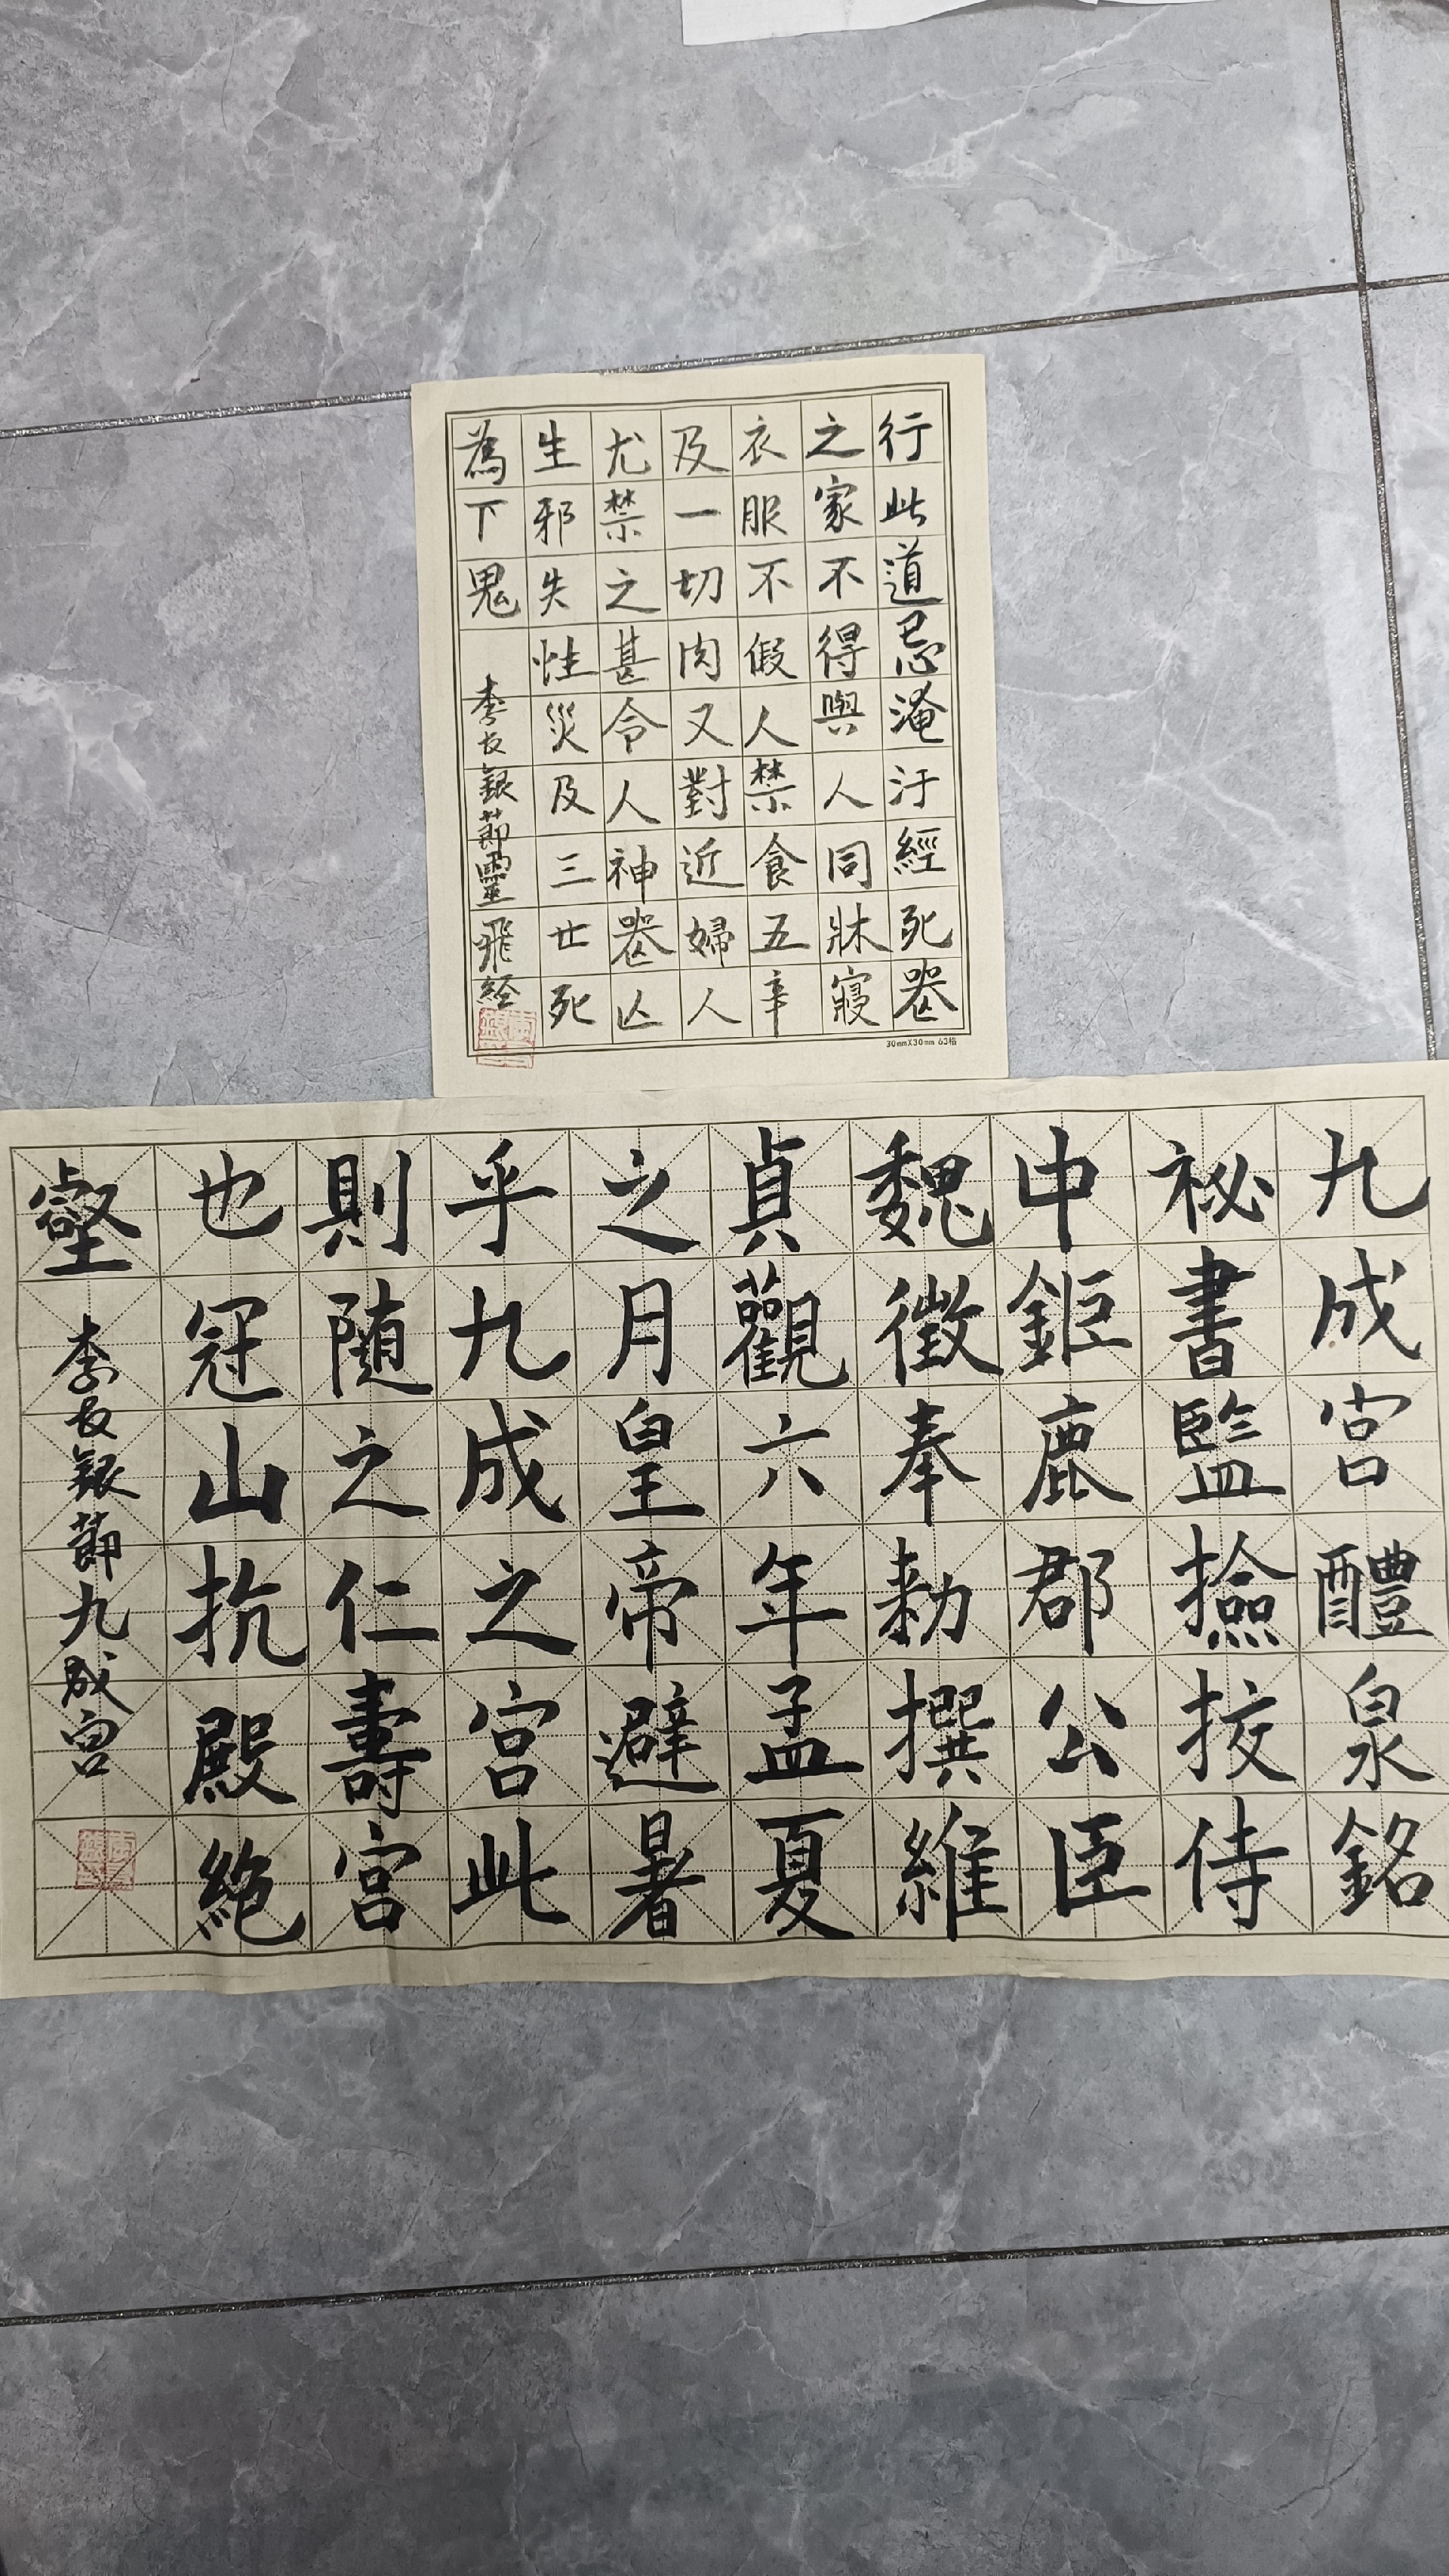 行此道忌淹汙經死器
之家不得與人同牀寢
衣服不假人禁食五辛
及一切肉又對近婦人
尤禁之甚令人神器亾
生邪失性災及三世死
為下鬼
李友銀節靈飛經
30mmX30mm 63格
九成宮醴泉銘
祕書監撿挍侍
中鉅鹿郡公臣
魏徵奉勑撰維
貞觀六年孟夏
之月皇帝避暑
乎九成之宮此
則隨之仁壽宮
也冠山抗殿絶
壑
李友銀節九成宮